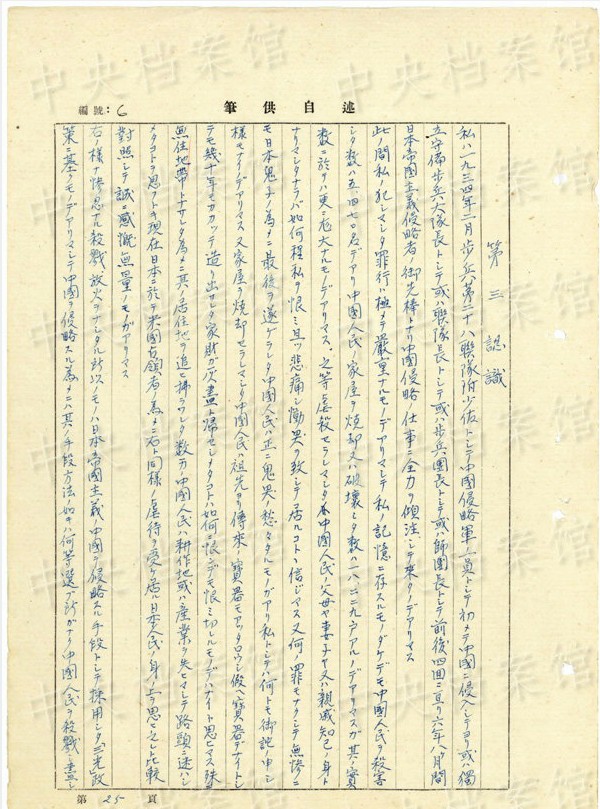 編號:6
筆供自述
第三 認識
私ハ一九三四年二月歩兵第二十八聯隊附少佐トシテ中國侵略軍ノ一員トシテ初メテ中國ニ侵入シテヨリ或ハ獨
立守備歩兵大隊長トシテ或ハ聯隊長トシテ或ハ歩兵團長トシテ或ハ師團長トシテ前後四回ニ亘リ六年八ヶ月間
日本帝國主義侵略者ノ御先棒トナリ中國侵略ノ仕事ニ全力ヲ傾注シテ来タノデアリマス
此ノ間私ノ犯シマシタ罪行ハ極メテ嚴重ナルモノデアリマシテ私ノ記憶ニ存スルモノダケデモ中國人民ヲ殺害
シタ数ハ五、四七〇名デアリ中國人民ノ家屋ヲ焼却又ハ破壊シタ数ハ一八、二二九戸アルノデアリマスガ其ノ實
数ニ於テハ更ニ尨大ナルモノデアリマス、之等ノ虐殺セラレマシタ各中國人民ノ父母ヤ妻子ヤ又ハ親戚知己ノ身ト
ナリマシタナラバ如何程私ヲ恨ミ且ツ悲痛シ慟哭ヲ致シテ居ルコトト信ジマス又何ノ罪モナクシテ無惨ニ
モ日本鬼子ノ為メニ最後ヲ遂ゲラレタ中國人民ハ正ニ鬼哭ノ愁々タルモノガアリ私トシテハ何トモ御詫ノ申シ
様モナイノデアリマス又家屋ヲ焼却セラレマシタ中國人民ハ祖先ヨリ傳来ノ寶器モアツタロウシ假令寶器デナイトシ
テモ幾十年モカカッテ造リ出サレタ家財ガ灰盡ト帰セシメタコトハ如何ニ恨ンデモ恨ミ切レルモノデハナイト思ヒマス殊ニ
無住地帶トナサシムル為メニ其ノ居住地ヲ追ヒ拂ワレタ数万ノ中國人民ハ耕作地或ハ産業ヲ失ヒマシテ路頭ニ迷ハシ
メタコトヲ思フトキ現在日本ニ於テ米國占領者ノ為メニ右ト同様ノ虐待ヲ受ケ居ル日本人民ノ身ノ上ヲ思ヒ之レト比較
對照シテ誠ニ感慨無量ノモノガアリマス
右ノ様ナ惨忍ナル殺戮、放火ヲナシタル所以ノモノハ日本帝國主義ノ中國ヲ侵略スル手段トシテ採用シタ三光政
策ニ基クモノデアリマシテ中國ヲ侵略スル為メニハ其ノ手段方法ノ如キハ何等選ブ所ガナク中國人民ヲ殺戮シ盡シ
第25頁
中央档案馆